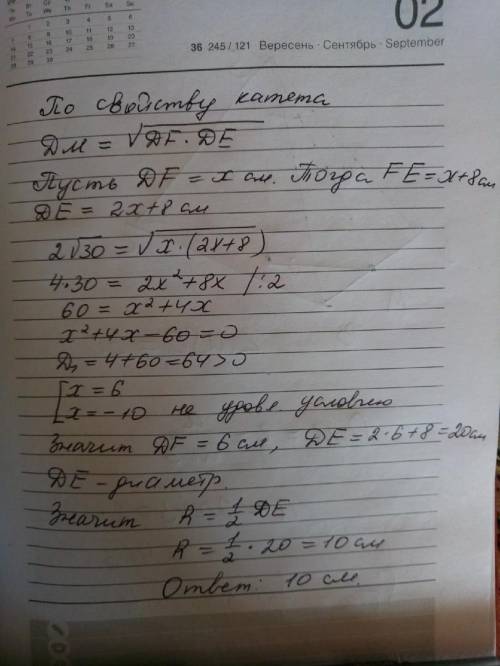 02
36 245/121 Вересень · Сентябрь · September
По свойству катета
ДМ = √DF · DE
Пусть DF = x см. Тогда FE = x+8 см
DE = 2x+8 см
2√30 = √x·(2x+8)
4·30 = 2x²+8x /:2
60 = x²+4x
x²+4x-60=0
Д₁=4+60=64>0
[x=6
[x=-10 не удовл условию
Значит DF = 6 см, DE=2·6+8=20см
DE - диаметр.
Значит R = 1/2 DE
R = 1/2 · 20 = 10 см
Ответ: 10 см.